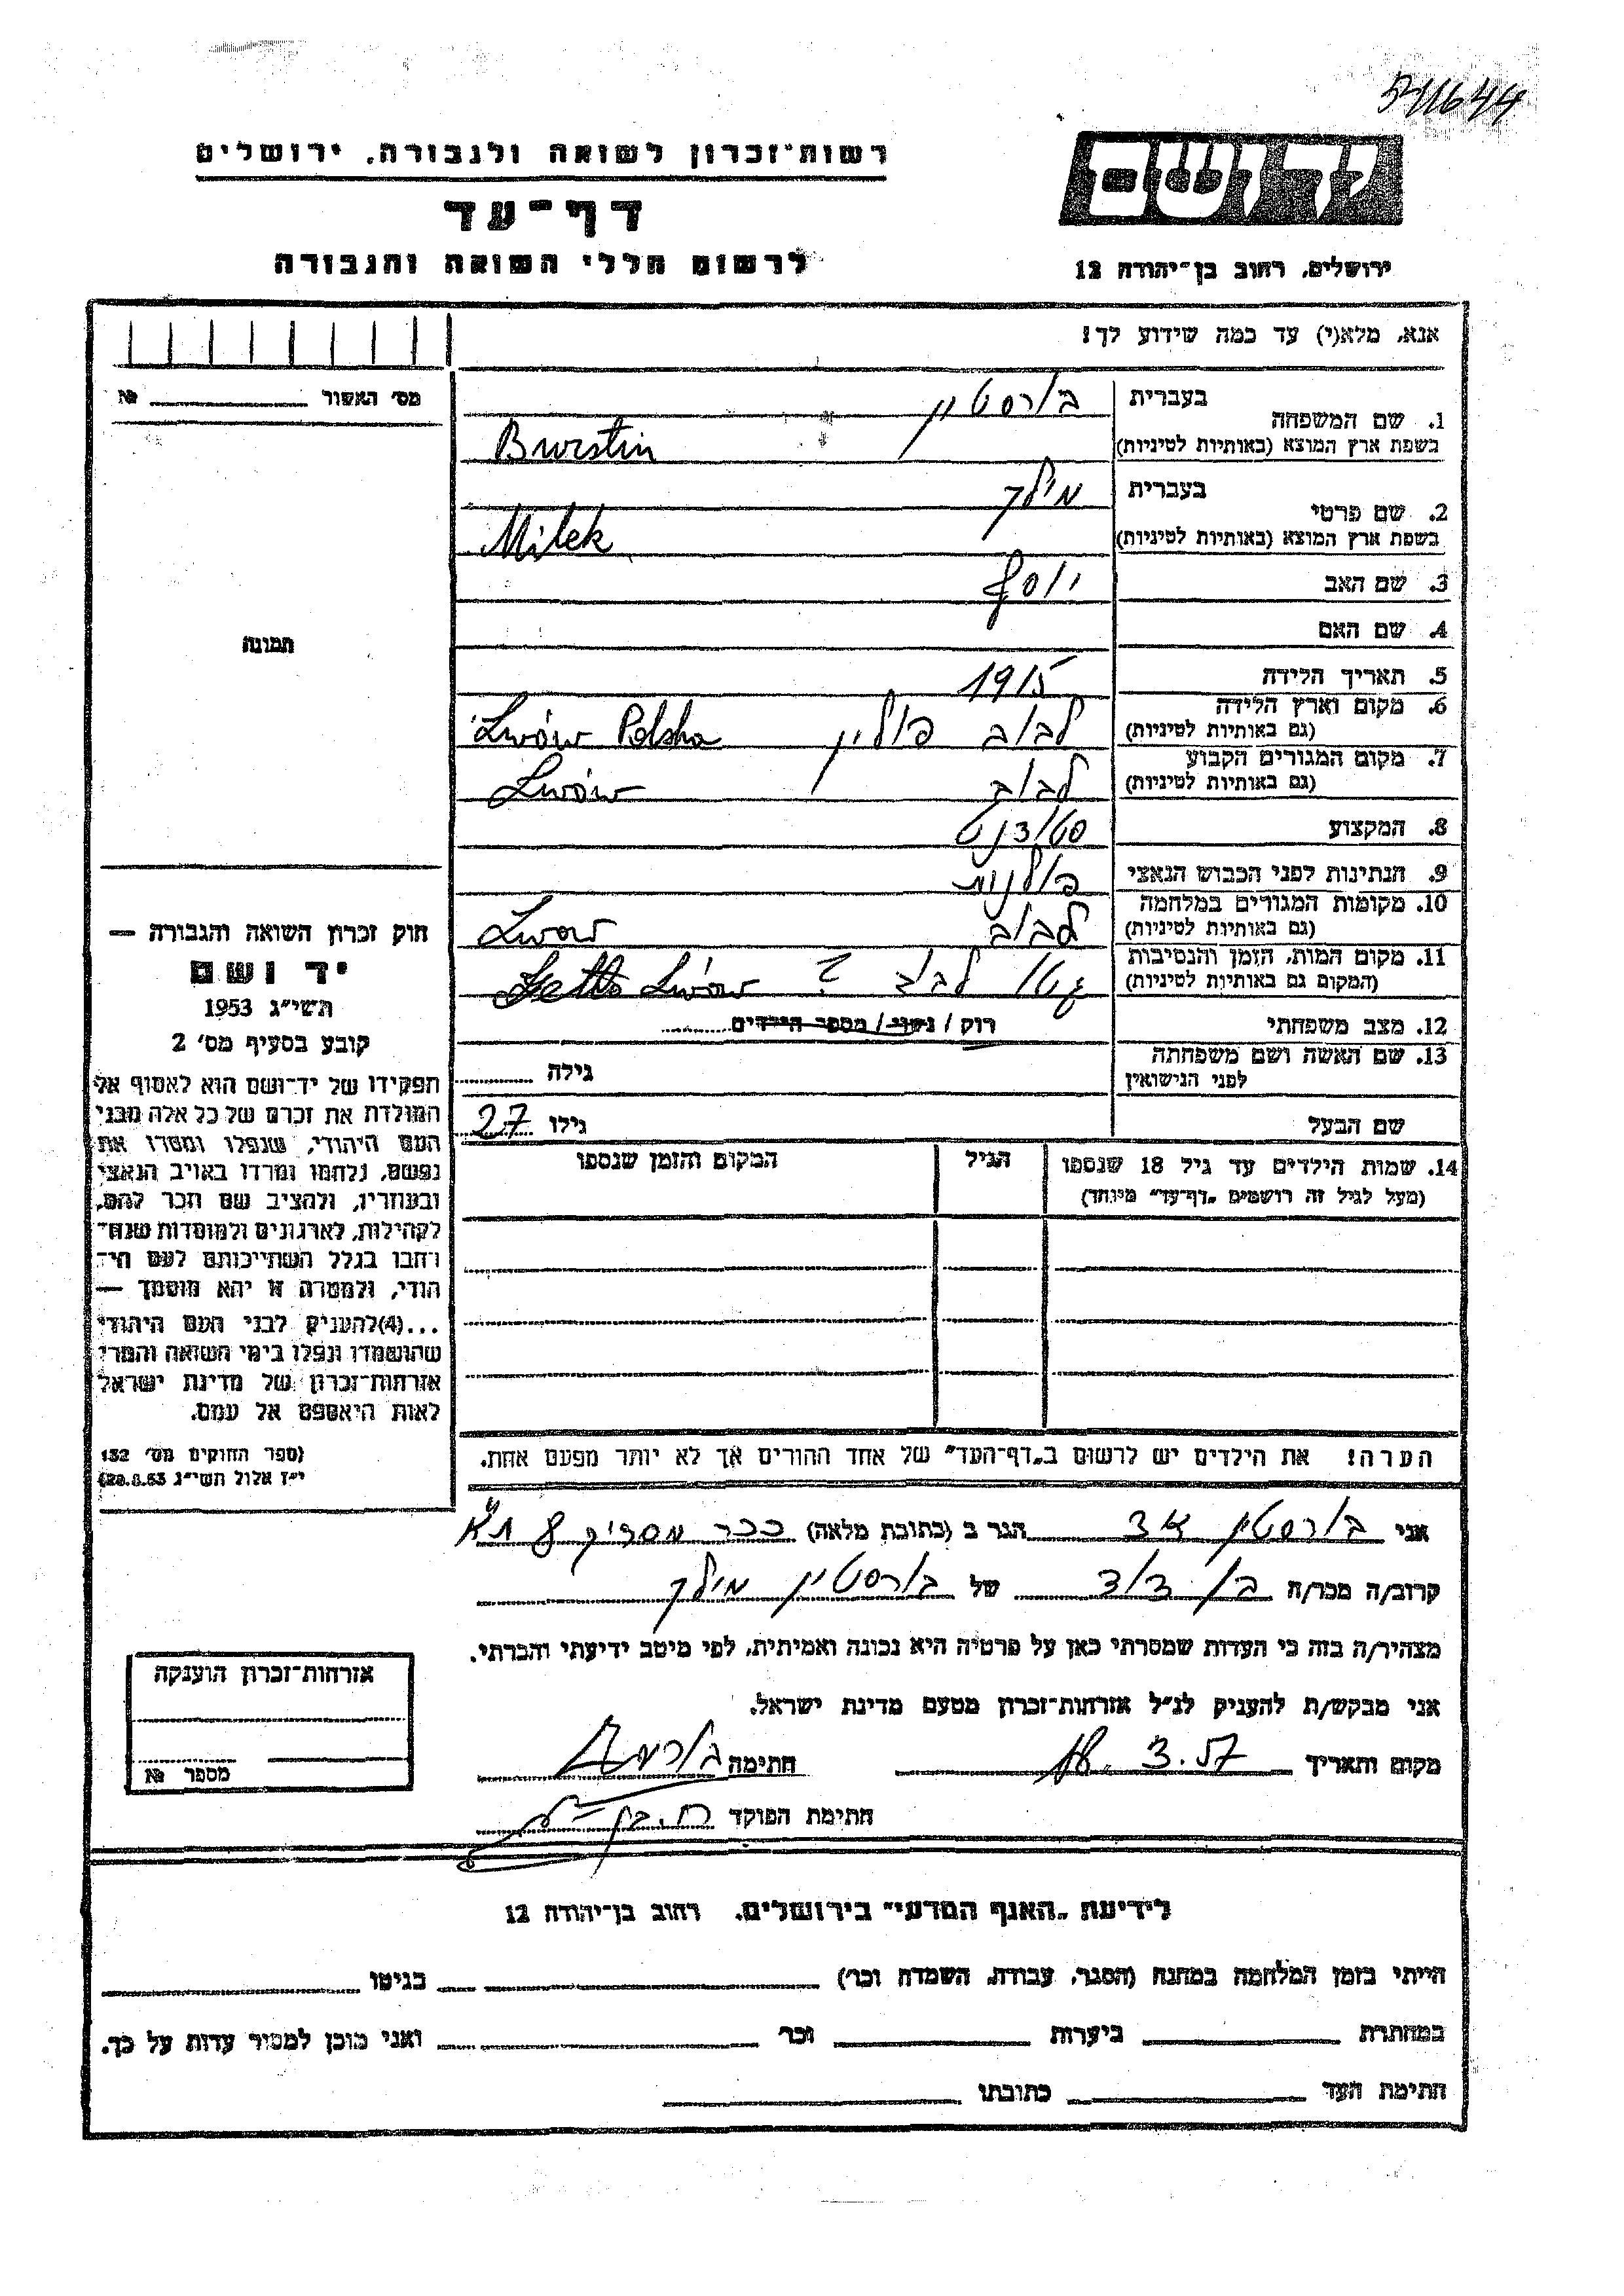 541644
רשות־זכרון לשואה ולגבורה, ירושלים
דף־עד
לרשום חללי השואה והגבורה
יד ושם
ירושלים, רחוב בן־יהודה 12
אנא, מלא(י) עד כמה שידוע לך!
מס׳ האשור № 
תמונה
1. שם המשפחה
בעברית בורסטין
בשפת ארץ המוצא (באותיות לטיניות) Burstin
2. שם פרטי
בעברית מילק
בשפת ארץ המוצא (באותיות לטיניות) Milek
3. שם האב יוסף
4. שם האם
5. תאריך הלידה 1915
6. מקום וארץ הלידה (גם באותיות לטיניות) לבוב פולין Lwów Polska
7. מקום המגורים הקבוע (גם באותיות לטיניות) לבוב Lwów
8. המקצוע סטודנט
9. הנתינות לפני הכבוש הנאצי פולנית
10. מקומות המגורים במלחמה (גם באותיות לטיניות) לבוב Lwow
11. מקום המות, הזמן והנסיבות (המקום גם באותיות לטיניות) גטו לבוב ? Getto Lwów
12. מצב משפחתי רוק / נשוי / מספר הילדים
13. שם האשה ושם משפחתה לפני הנישואין גילה
שם הבעל גילו 27
14. שמות הילדים עד גיל 18 שנספו הגיל המקום והזמן שנספו
(מעל לגיל זה רושמים „דף־עד״ מיוחד)
הערה! את הילדים יש לרשום ב„דף־העד״ של אחד ההורים אך לא יותר מפעם אחת.
חוק זכרון השואה והגבורה —
יד ושם
תשי״ג 1953
קובע בסעיף מס׳ 2
תפקידו של יד־ושם הוא לאסוף אל
המולדת את זכרם של כל אלה מבני
העם היהודי, שנפלו ומסרו את
נפשם, נלחמו ומרדו באויב הנאצי
ובעוזריו, ולהציב שם וזכר להם,
לקהילות, לארגונים ולמוסדות שנח־
רבו בגלל השתייכותם לעם הי־
הודי, ולמטרה זו יהא מוסמך —
...(4) להעניק לבני העם היהודי
שהושמדו ונפלו בימי השואה והמרי
אזרחות־זכרון של מדינת ישראל
לאות היאספם אל עמם.
(ספר החוקים מס׳ 132
י״ז אלול תשי״ג 28.8.53)
אני בורסטין הגר ב (כתובת מלאה) ככר מסריק 8 ת״א
קרוב/ה מכר/ה בן דוד של בורסטין מילק
מצהיר/ה בזה כי העדות שמסרתי כאן על פרטיה היא נכונה ואמיתית, לפי מיטב ידיעתי והכרתי.
אני מבקש/ת להעניק לנ״ל אזרחות־זכרון מטעם מדינת ישראל.
מקום ותאריך 18.3.57 חתימה
חתימת הפוקד
אזרחות־זכרון הוענקה
מספר №
לידיעת „האגף המדעי״ בירושלים. רחוב בן־יהודה 12
הייתי בזמן המלחמה במחנה (הסגר, עבודה, השמדה וכו׳) בגיטו
במחתרת ביערות וכו׳ ואני מוכן למסור עדות על כך.
חתימת העד כתובתו